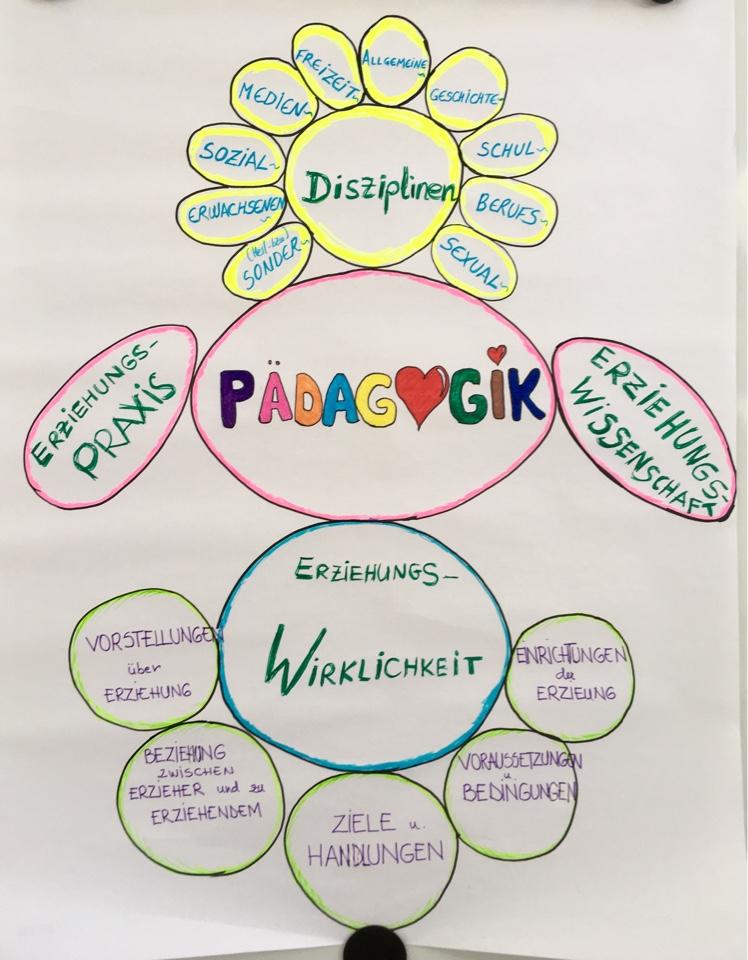 ALLGEMEINE~
FREIZEIT~
GESCHICHTE~
MEDIEN~
SCHUL~
SOZIAL~
Disziplinen
ERWACHSENEN
BERUFS~
(Heil-bzw)
SONDER~
SEXUAL~
PÄDAGOGIK
ERZIEHUNGS-
PRAXIS
ERZIEHUNGS-
WISSENSCHAFT
ERZIEHUNGS-
WIRKLICHKEIT
VORSTELLUNGEN
über
ERZIEHUNG
EINRICHTUNGEN
der
ERZIEUNG
BEZIEHUNG
ZWISCHEN
ERZIEHER und zu
ERZIEHENDEM
VORAUSSETZUNGEN
u.
BEDINGUNGEN
ZIELE u.
HANDLUNGEN